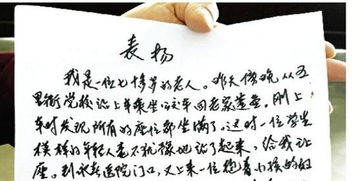 表扬
我是一位七十多岁的老人。昨天傍晚从五
里街学校站上车乘坐15路车回老家蓬壶，刚上
车时发现所有的座位都坐满了。这时一位学生
模样的年轻人毫不犹豫地站了起来，给我让
座。到永春医院门口，又上来一位抱着小孩的妇